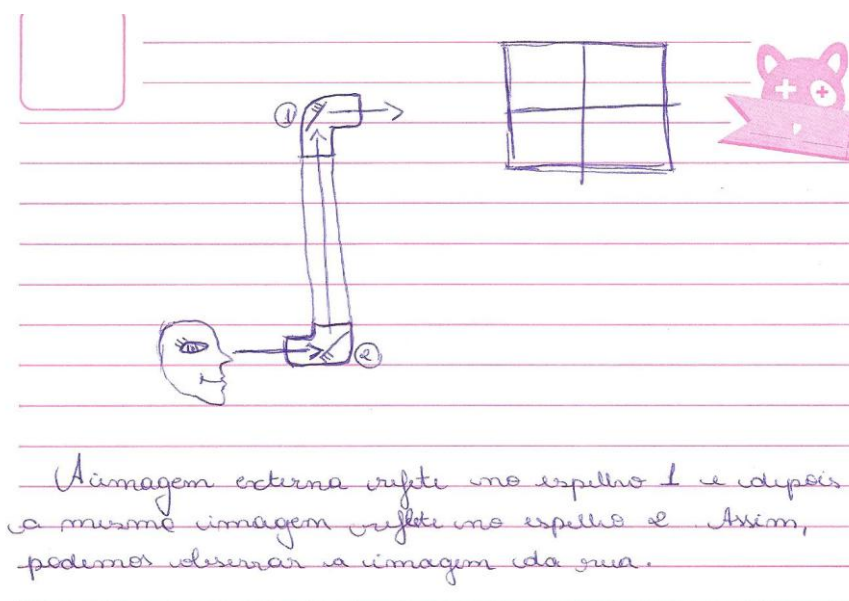 1
2
A imagem externa reflete no espelho 1 e depois
a mesma imagem reflete no espelho 2 Assim,
podemos observar a imagem da rua.